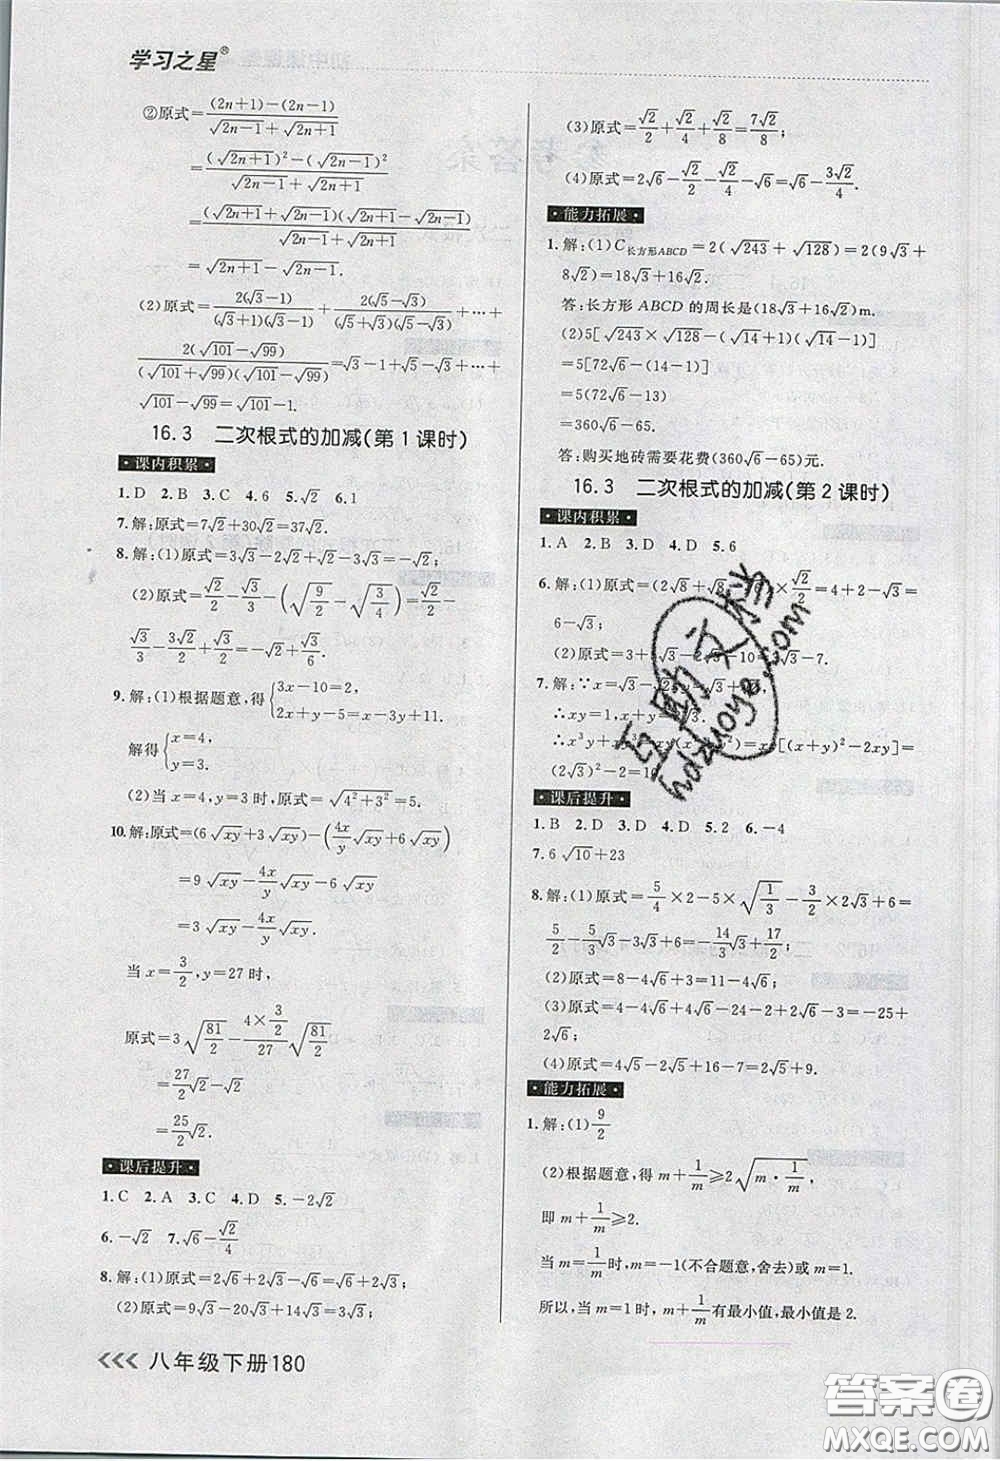 学习之星®
②原式=\frac{(2n+1)-(2n-1)}{\sqrt{2n-1}+\sqrt{2n+1}}
=\frac{(\sqrt{2n+1})²-(\sqrt{2n-1})²}{\sqrt{2n-1}+\sqrt{2n+1}}
=\frac{(\sqrt{2n+1}+\sqrt{2n-1})(\sqrt{2n+1}-\sqrt{2n-1})}{\sqrt{2n-1}+\sqrt{2n+1}}
=\sqrt{2n+1}-\sqrt{2n-1}.
(2)原式=\frac{2(√3-1)}{(√3+1)(√3-1)}+\frac{2(√5-√3)}{(√5+√3)(√5-√3)}+…+
\frac{2(\sqrt{101}-\sqrt{99})}{(\sqrt{101}+\sqrt{99})(\sqrt{101}-\sqrt{99})}=√3-1+√5-√3+…+
\sqrt{101}-\sqrt{99}=\sqrt{101}-1.
16.3 二次根式的加减(第1课时)
课内积累
1.D 2.B 3.C 4.6 5.√2 6.1
7.解:原式=7√2+30√2=37√2.
8.解:(1)原式=3√3-2√2+√2-3√3=-√2.
(2)原式=\frac{√2}{2}-\frac{√3}{3}-(\sqrt{\frac{9}{2}}-\sqrt{\frac{3}{4}})=\frac{√2}{2}-
\frac{√3}{3}-\frac{3√2}{2}+\frac{√3}{2}=-√2+\frac{√3}{6}.
9.解:(1)根据题意,得{3x-10=2,
2x+y-5=x-3y+11.
解得{x=4,
y=3.
(2)当x=4,y=3时,原式=\sqrt{4²+3²}=5.
10.解:原式=(6\sqrt{xy}+3\sqrt{xy})-(\frac{4x}{y}\sqrt{xy}+6\sqrt{xy})
=9\sqrt{xy}-\frac{4x}{y}\sqrt{xy}-6\sqrt{xy}
=3\sqrt{xy}-\frac{4x}{y}\sqrt{xy}.
当x=\frac{3}{2},y=27时,
原式=3\sqrt{\frac{81}{2}}-\frac{4×\frac{3}{2}}{27}\sqrt{\frac{81}{2}}
=\frac{27}{2}√2-√2
=\frac{25}{2}√2.
课后提升
1.C 2.A 3.C 4.D 5.-2√2
6.-√2 7.√6-\frac{√2}{4}
8.解:(1)原式=2√6+2√3-√6=√6+2√3;
(2)原式=9√3-20√3+14√3=3√3;
八年级下册180
(3)原式=\frac{√2}{2}+\frac{√2}{4}+\frac{√2}{8}=\frac{7√2}{8};
(4)原式=2√6-\frac{√2}{2}-\frac{√2}{4}-√6=√6-\frac{3√2}{4}.
能力拓展
1.解:(1)C长方形ABCD=2(\sqrt{243}+\sqrt{128})=2(9√3+
8√2)=18√3+16√2.
答:长方形ABCD的周长是(18√3+16√2)m.
(2)5[\sqrt{243}×\sqrt{128}-(14-1)]
=5[72√6-(14-1)]
=5(72√6-13)
=360√6-65.
答:购买地砖需要花费(360√6-65)元.
16.3 二次根式的加减(第2课时)
课内积累
1.A 2.B 3.D 4.D 5.6
6.解:(1)原式=(2√8+√8 ×\frac{√2}{2}=4+2-√3=
6-√3;
(2)原式=3+ √3-2√3-10= √3-7.
7.解:∵x=√3-√2,y=√3+√2,
∴xy=1,x+y=2√3.
∴x³y+xy³=xy(x²+y²)=xy[(x+y)²-2xy]=
(2√3)²-2=10.
课后提升
1.B 2.D 3.D 4.D 5.2 6.-4
7.6\sqrt{10}+23
8.解:(1)原式=\frac{5}{4}×2-5×\sqrt{\frac{1}{3}}-\frac{3}{2}×2√3+6=
\frac{5}{2}-\frac{5}{3}√3-3√3+6=-\frac{14}{3}√3+\frac{17}{2};
(2)原式=8-4√6+3=11-4√6;
(3)原式=4-4√6+4√6-24-2+2√6-3=-25+
2√6;
(4)原式=4√5-2√5+16-7=2√5+9.
能力拓展
1.解:(1)\frac{9}{2}
(2)根据题意,得m+\frac{1}{m}≥2\sqrt{m·\frac{1}{m}},
即m+\frac{1}{m}≥2.
当m=\frac{1}{m}时,m=-1(不合题意,舍去)或m=1.
所以,当m=1时,m+\frac{1}{m}有最小值,最小值是2.
互助文档
hdzuoye.com
答案圈
MXQE.COM